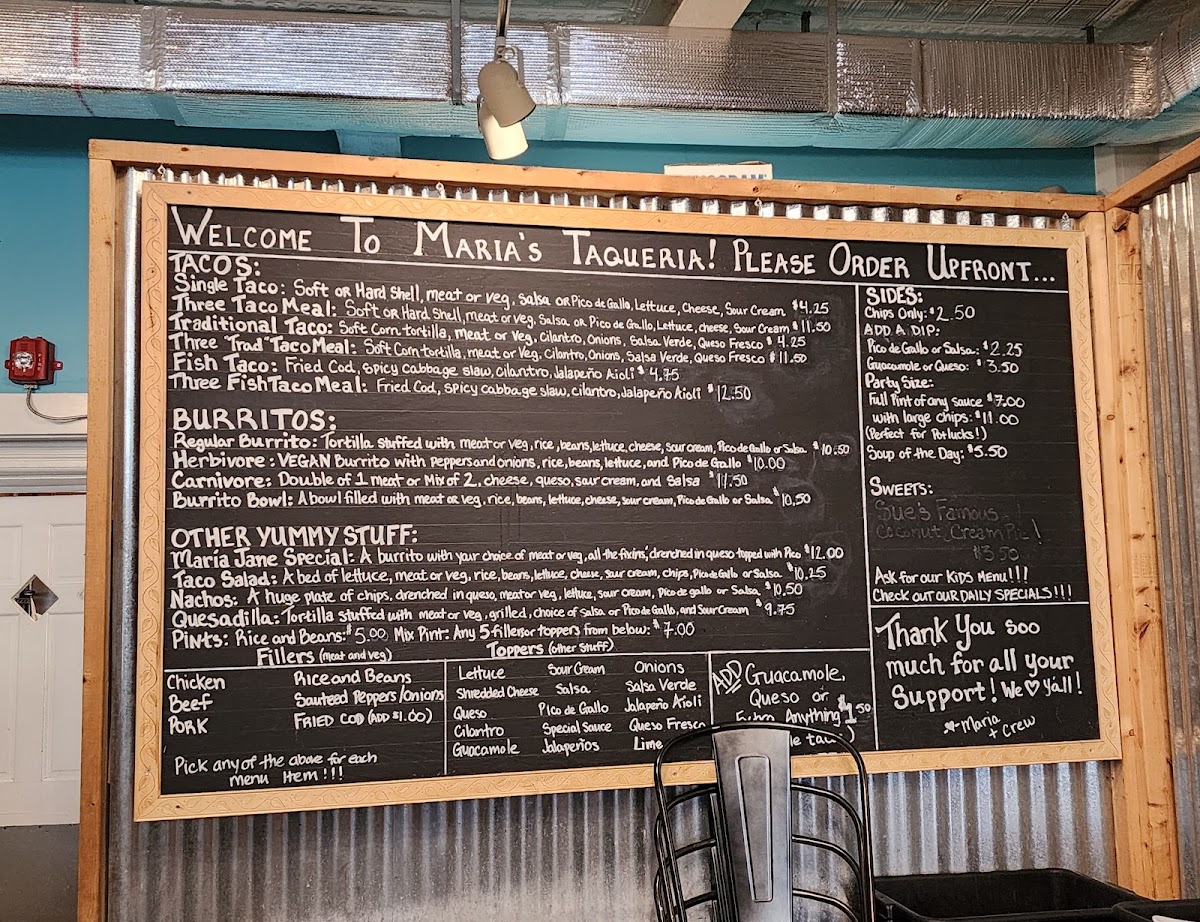 Welcome To Maria's Taqueria! Please Order Upfront...
TACOS:
Single Taco: Soft or Hard Shell, meat or veg, Salsa or Pico de Gallo, Lettuce, Cheese, Sour Cream $4.25
Three Taco Meal: Soft or Hard Shell, meat or veg, Salsa or Pico de Gallo, Lettuce, cheese, Sour Cream $11.50
Traditional Taco: Soft Corn tortilla, meat or Veg, Cilantro, Onions, Salsa Verde, Queso Fresco $4.25
Three "Trad" Taco Meal: Soft Corn tortilla, meat or Veg, Cilantro, Onions, Salsa Verde, Queso Fresco $11.50
Fish Taco: Fried Cod, Spicy Cabbage slaw, cilantro, Jalapeño Aioli $4.75
Three Fish Taco Meal: Fried Cod, spicy cabbage slaw, cilantro, Jalapeño Aioli $12.50
BURRITOS:
Regular Burrito: Tortilla stuffed with meat or veg, rice, beans, lettuce, cheese, sour cream, Pico de Gallo or Salsa $10.50
Herbivore: VEGAN Burrito with peppers and onions, rice, beans, lettuce, and Pico de Gallo $10.00
Carnivore: Double of 1 meat or Mix of 2, cheese, queso, sour cream, and Salsa $11.50
Burrito Bowl: A bowl filled with meat or veg, rice, beans, lettuce, cheese, sour cream, Pico de Gallo or Salsa $10.50
OTHER YUMMY STUFF:
Maria Jane Special: A burrito with your choice of meat or veg, all the fixins', drenched in queso topped with Pico $12.00
Taco Salad: A bed of lettuce, meat or veg, rice, beans, lettuce, cheese, sour cream, chips, Pico de Gallo or Salsa $10.25
Nachos: A huge plate of chips, drenched in queso, meat or veg, lettuce, sour cream, Pico de gallo or Salsa $10.50
Quesadilla: Tortilla stuffed with meat or veg, grilled, choice of Salsa or Pico de Gallo, and Sour Cream $9.75
Pints: Rice and Beans: $5.00 Mix Pint: Any 5 fillers or toppers from below: $7.00
Fillers (meat and veg)
Chicken Rice and Beans
Beef Sauteed Peppers/Onions
Pork Fried Cod (Add $1.00)
Pick any of the above for each
menu Item!!!
Toppers (other Stuff)
Lettuce Sour Cream Onions
Shredded Cheese Salsa Salsa Verde
Queso Pico de Gallo Jalapeño Aioli
Cilantro Special Sauce Queso Fresco
Guacamole Jalapeños Lime
ADD Guacamole,
Queso or
Extra Anything $1.50
SIDES:
Chips Only: $2.50
ADD A DIP:
Pico de Gallo or Salsa: $2.25
Guacamole or Queso: $3.50
Party Size:
Full Pint of any sauce $7.00
with large chips: $11.00
(Perfect for Potlucks!)
Soup of the Day: $5.50
SWEETS:
Sue's Famous
Coconut Cream Pie!
$3.50
Ask for our Kids Menu!!!
Check out our DAILY SPECIALS!!!
Thank You soo
much for all your
Support! We ♡ y'all!
Maria
+ Crew